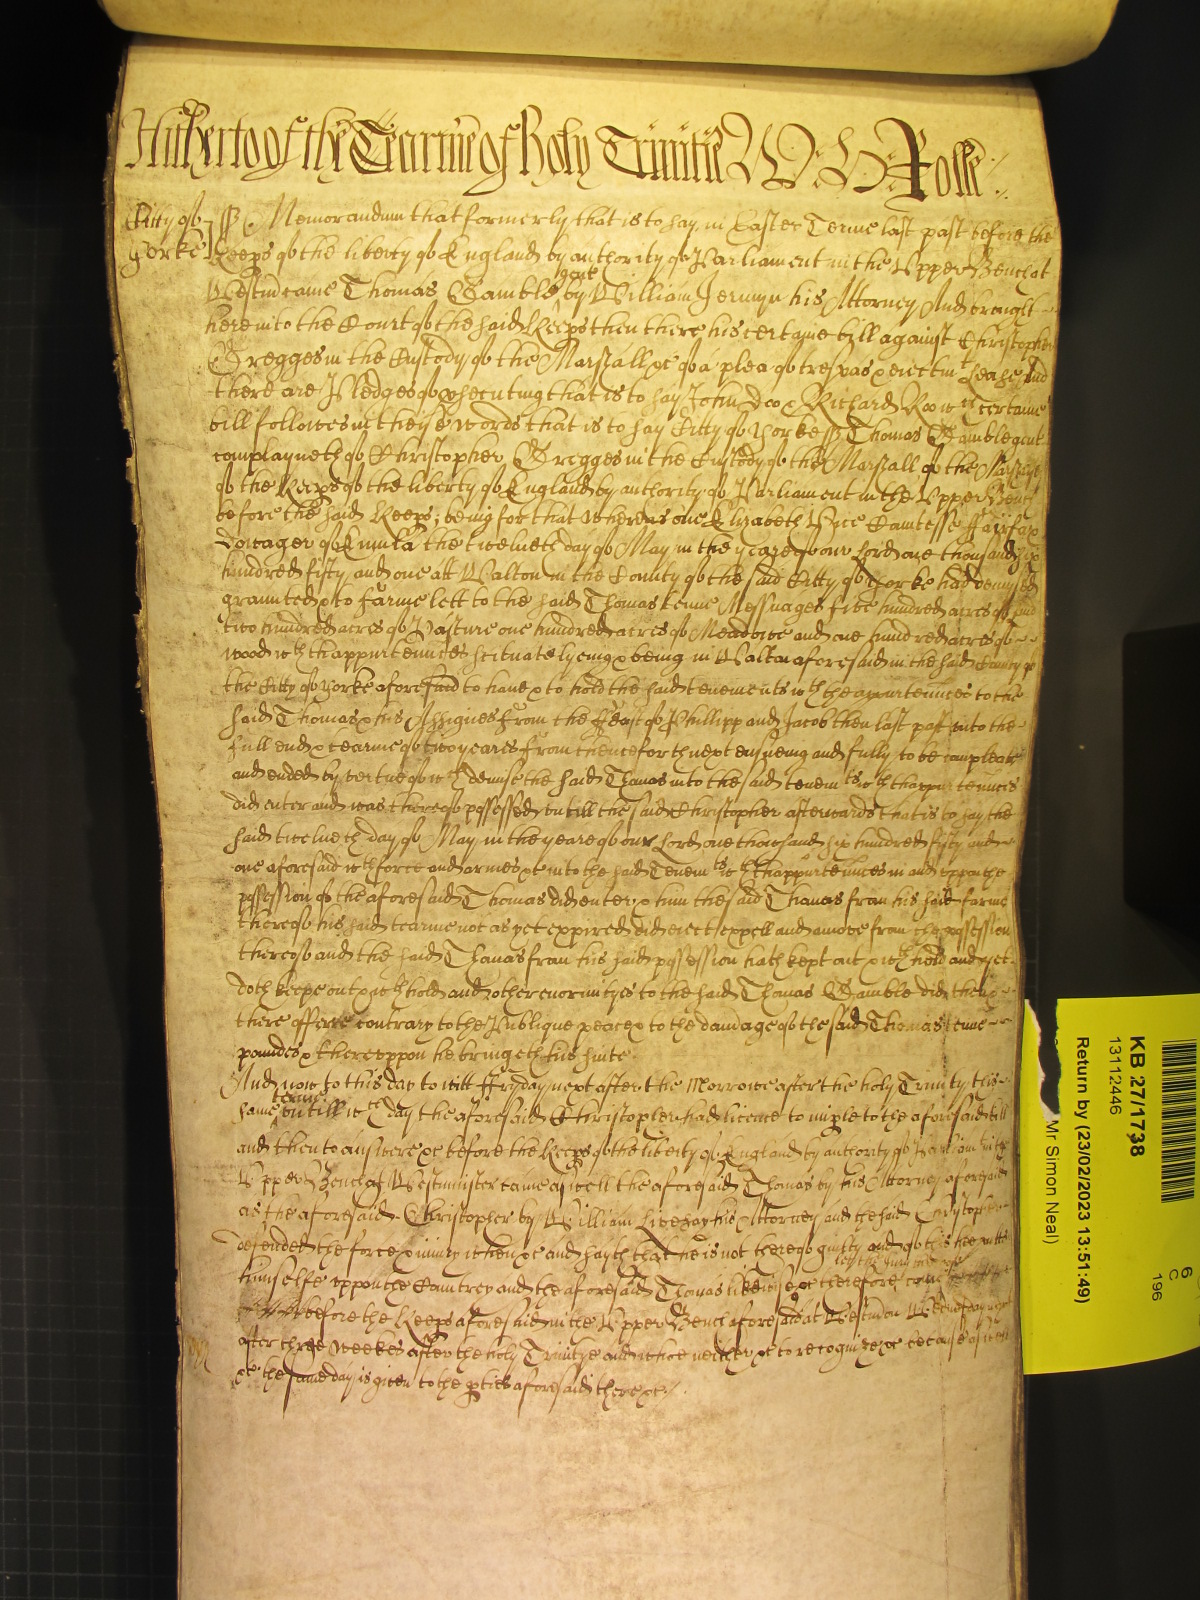 Hitherto of the Tearme of Holy Trinitie Rolle
Citty of Yorke ss Memorandum that formerly that is to say in Easter Terme last past before the
Keeps of the liberty of England by authority of Parliament in the Upper Bench at
Westm came Thomas Gamble gent by William Jermyn his Attorney And brought
here into the Court of the said Keeps then there his certaine bill against Christopher
Gregges in the Custody of the Marshall &c of a plea of trespas & eiectm And
there are Pledges of psecuting that is to say John Doo & Richard Roo wch certaine
bill followes in theise words that is to say Citty of Yorke ss Thomas Gamble gent
complayneth of Christopher Gregges in the Custody of the Marshall of the
of the Keeps of the liberty of England by authority of Parliament in the Upper Bench
before the said Keeps; being for that Whereas one Elizabeth Vice Countesse ffairfax
Dowager of the twelueth day of May in the yeare of our Lord one thousand six
hundred fifty and one att Walton in the County of the said Citty of Yorke had demised
graunted & to farme lett to the said Thomas tenne Messuages five hundred acres of land
two hundred acres of Pasture one hundred acres of Meadowe and one hundred acres of
wood wth thappurtenncs scituate lyeing & being in Walton aforesaid in the said County of
the Citty of Yorke aforesaid to haue & to hold the said tenements wth the appurtenncs to the
said Thomas & his Assignes from the feast of Phillipp and Jacob then last past unto the
full end & tearme of two yeares from thenceforth next ensueing and fully to be compleate
and ended by vertue of wch demise the said Thomas into the said tenemts wth thappurtenncs
did enter and was thereof possessed untill the said Christopher afterwards that is to say the
said twelueth day of May in the yeare of our Lord one thousand six hundred fifty and
one aforesaid wth force and armes &c into the said Tenemts wth thappurtenncs in and uppon the
possession of the aforesaid Thomas did enter & him the said Thomas from his said farme
thereof his said tearme not as yet expired did eiect expell and amove from the possession
thereof and the said Thomas from his said possession hath kept out & wth held and yet
doth keepe out & wth hold and other enormityes to the said Thomas Gamble did then &
there offerre contrary to the Publique peace & to the damage of the said Thomas tenne
poundes & thereuppon he bringeth his suite
And now to this day to witt ffryday next after the Morrowe after the holy Trinity this
same terme untill wch day the aforesaid Christopher had licence to imple to the aforesaid bill
and then to answere &c before the Keeps of the liberty of England by authority of Parliam in the
Upper Bench at Westminster came aswell the aforesaid Thomas by his Attorney aforesaid
as the aforesaid Christopher by William Livesay his Attorney and the said Christopher
defended the force & iniury when &c and sayth that he is not thereof guilty and of this hee putts
himselfe uppon the Countrey and the aforesaid Thomas likewise &c therefore come
before the Keeps aforesaid in the Upper Bench aforesaid at Westm Wednesday next
after three weekes after the holy Trinitye and whoe neither &c to recognize &c because aswell
&c the same day is given to the pties aforesaid there &c
KB 27/1738
13112446
Return by (23/02/2023 13:51:49)
Mr Simon Neal)
6
C
196